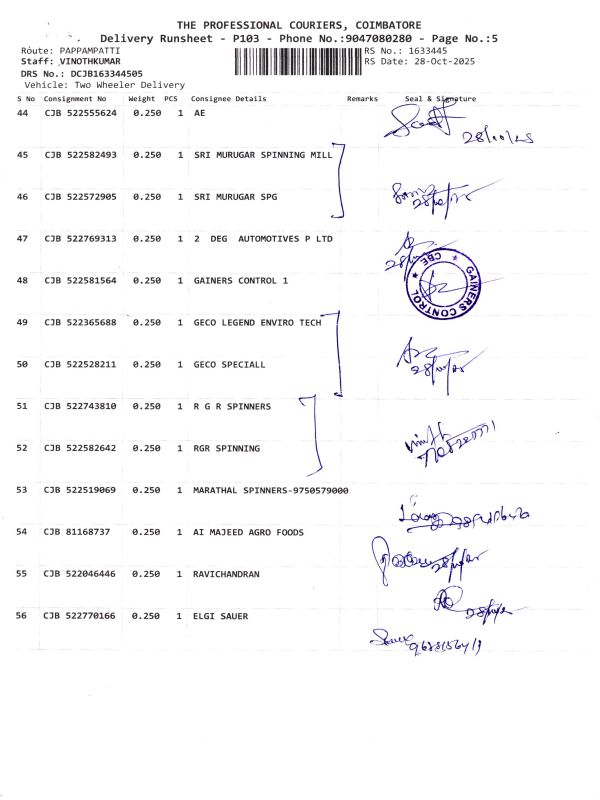 THE PROFESSIONAL COURIERS, COIMBATORE
Delivery Runsheet - P103 - Phone No.:9047080280 - Page No.:5
Route: PAPPAMPATTI RS No.: 1633445
Staff: VINOTHKUMAR RS Date: 28-Oct-2025
DRS No.: DCJB163344505
Vehicle: Two Wheeler Delivery
S No Consignment No Weight PCS Consignee Details Remarks Seal & Signature
44 CJB 522555624 0.250 1 AE
28/10/25
45 CJB 522582493 0.250 1 SRI MURUGAR SPINNING MILL
46 CJB 522572905 0.250 1 SRI MURUGAR SPG
47 CJB 522769313 0.250 1 2 DEG AUTOMOTIVES P LTD
48 CJB 522581564 0.250 1 GAINERS CONTROL 1
GAINERS CONTROL CBE
49 CJB 522365688 0.250 1 GECO LEGEND ENVIRO TECH
50 CJB 522528211 0.250 1 GECO SPECIALL
28/10/25
51 CJB 522743810 0.250 1 R G R SPINNERS
52 CJB 522582642 0.250 1 RGR SPINNING
53 CJB 522519069 0.250 1 MARATHAL SPINNERS-9750579000
54 CJB 81168737 0.250 1 AI MAJEED AGRO FOODS
55 CJB 522046446 0.250 1 RAVICHANDRAN
56 CJB 522770166 0.250 1 ELGI SAUER